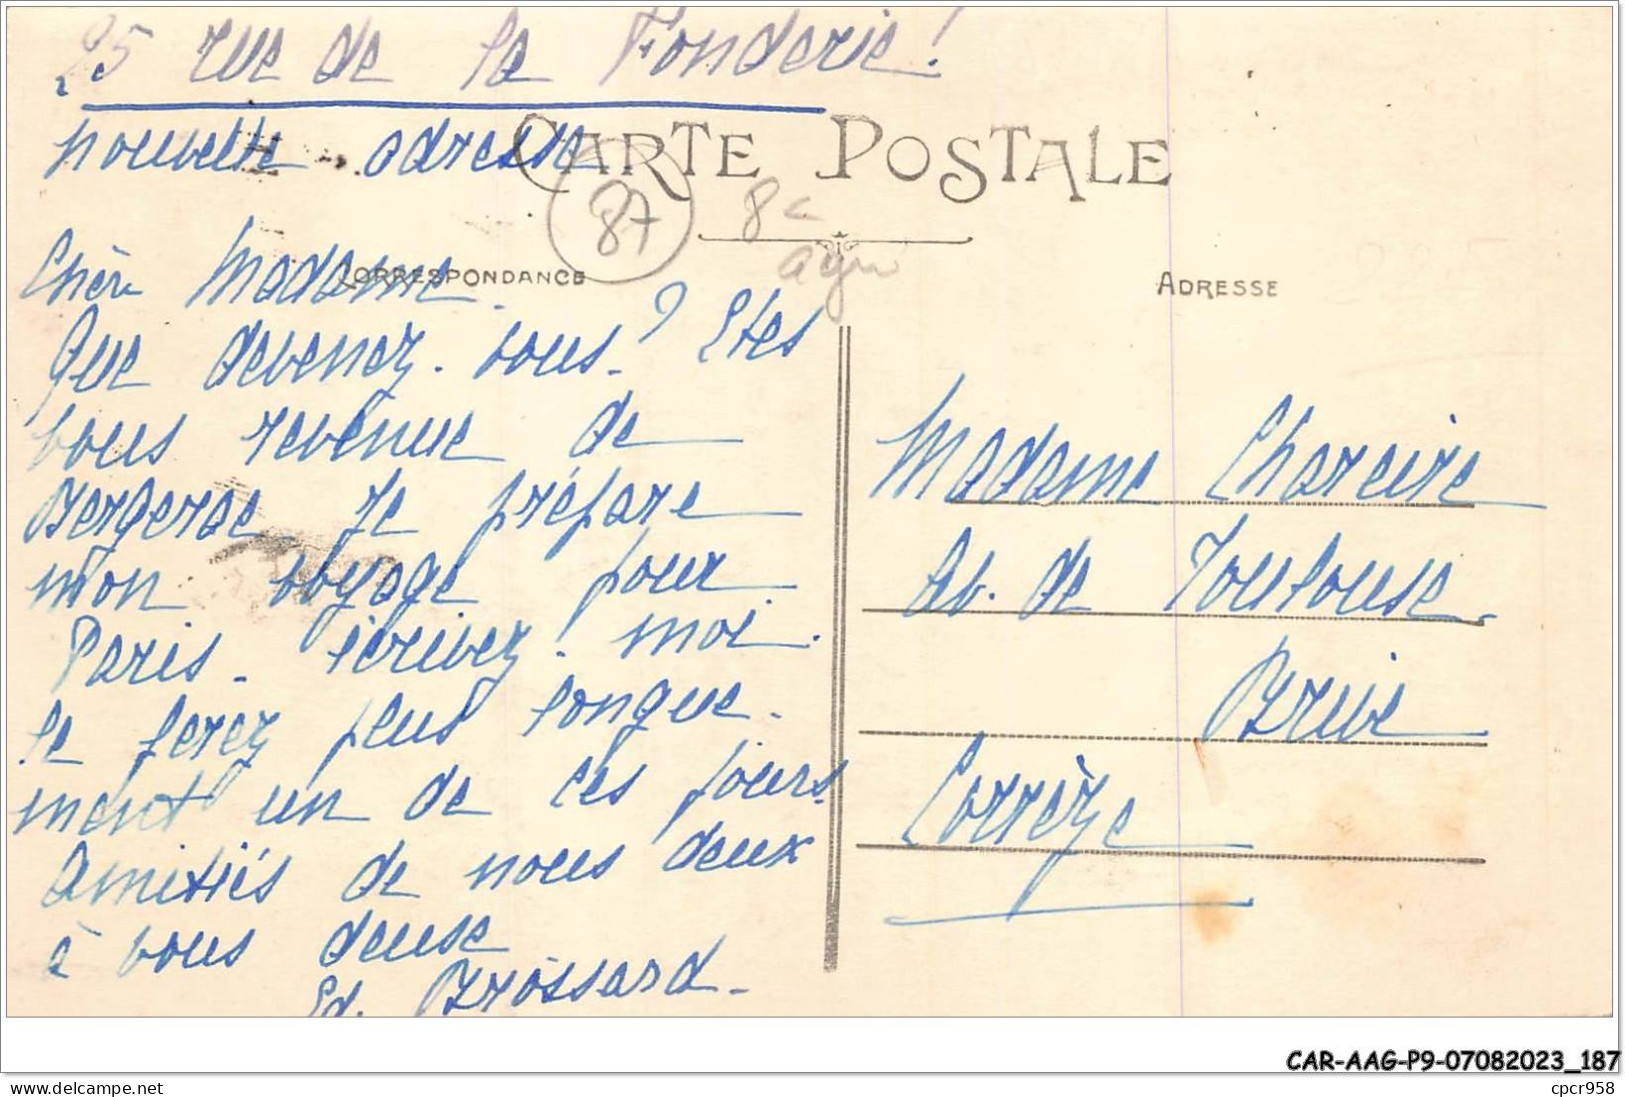 25 rue de la Fonderie!
nouvelle adresse
CARTE POSTALE
87
8c
CORRESPONDANCE
ADRESSE
Chère Madame.
Que devenez-vous? Etes
vous revenue de
Bergerac Je prépare
mon voyage pour
Paris. écrivez-moi.
le ferez plus longue-
ment un de ces jours.
Amitiés de nous deux
à vous deuse
Ed. Brossard.
Madame Chareire
Av. de Toulouse.
Brive
Corrèze
CAR-AAG-P9-07082023_187
www.delcampe.net
cpcr958